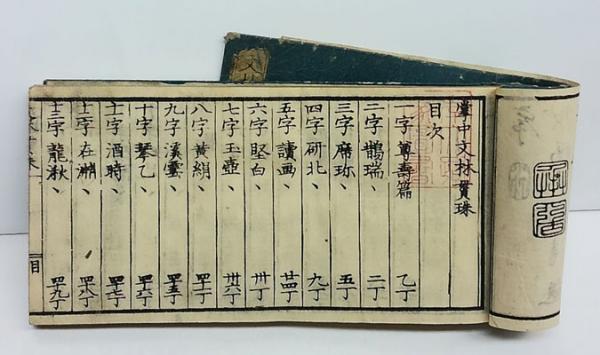 掌中文林貫珠
目次
一字 尊壽篇 乙丁
二字 鵲瑞、 二丁
三字 席珍、 五丁
四字 研北、 九丁
五字 讀画、 廿四丁
六字 堅白、 卅丁
七字 玉壺、 卅六丁
八字 黄絹、 四十丁
九字 溪雲、 四十五丁
十字 琴乙、 四十六丁
十一字 酒時、 四十七丁
十二字 在、 四十八丁
十三字 龍湫、 四十九丁
目